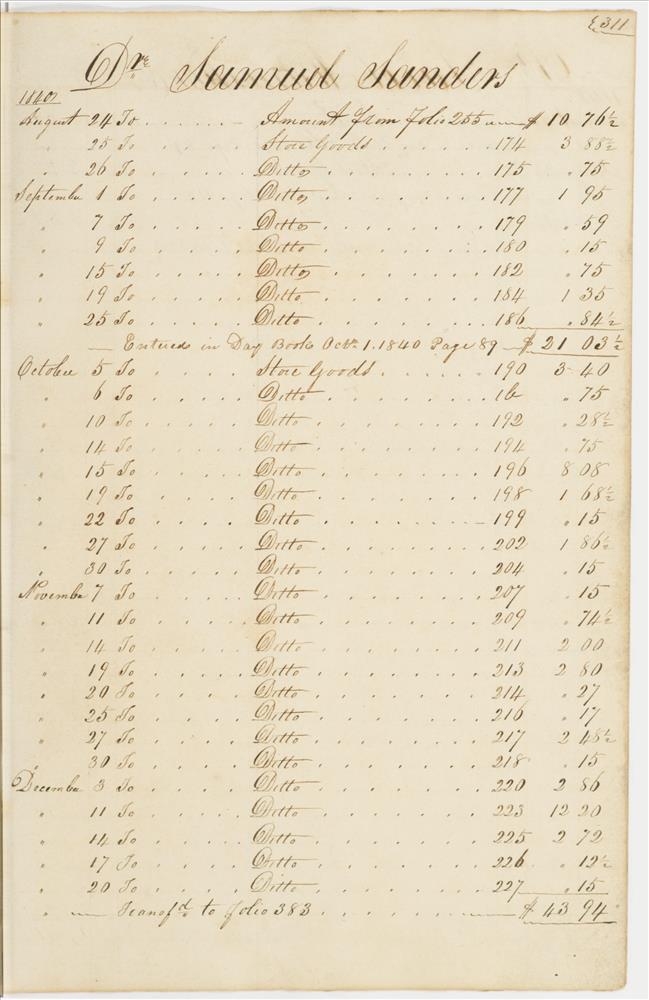 £311
Dre Samuel Sanders
1840
August 24 To . . . . . . Amount from folio 255 — $ 10 76½
" 25 To . . . . . Store Goods . . . . . . 174 3 88½
" 26 To . . . . . Ditto . . . . . . . . 175 " 75
September 1 To . . . . . Ditto . . . . . . . . 177 1 95
" 7 To . . . . . Ditto . . . . . . . . 179 " 59
" 9 To . . . . . Ditto . . . . . . . . 180 " 15
" 15 To . . . . . Ditto . . . . . . . . 182 " 75
" 19 To . . . . . Ditto . . . . . . . . 184 1 35
" 25 To . . . . . Ditto . . . . . . . . 186 " 84½
— Entered in Day Book Octr 1. 1840 Page 89 — $ 21 03½
October 5 To . . . . . Store Goods . . . . . . 190 3 40
" 6 To . . . . . Ditto . . . . . . . . ib " 75
" 10 To . . . . . Ditto . . . . . . . . 192 " 28½
" 14 To . . . . . Ditto . . . . . . . . 194 " 75
" 15 To . . . . . Ditto . . . . . . . . 196 8 08
" 19 To . . . . . Ditto . . . . . . . . 198 1 68½
" 22 To . . . . . Ditto . . . . . . . . 199 " 15
" 27 To . . . . . Ditto . . . . . . . . 202 1 86½
" 30 To . . . . . Ditto . . . . . . . . 204 " 15
November 7 To . . . . . Ditto . . . . . . . . 207 " 15
" 11 To . . . . . Ditto . . . . . . . . 209 " 74½
" 14 To . . . . . Ditto . . . . . . . . 211 2 00
" 19 To . . . . . Ditto . . . . . . . . 213 2 80
" 20 To . . . . . Ditto . . . . . . . . 214 " 27
" 25 To . . . . . Ditto . . . . . . . . 216 " 17
" 27 To . . . . . Ditto . . . . . . . . 217 2 48½
" 30 To . . . . . Ditto . . . . . . . . 218 " 15
December 3 To . . . . . Ditto . . . . . . . . 220 2 86
" 11 To . . . . . Ditto . . . . . . . . 223 12 20
" 14 To . . . . . Ditto . . . . . . . . 225 2 72
" 17 To . . . . . Ditto . . . . . . . . 226 " 12½
" 20 To . . . . . Ditto . . . . . . . . 227 " 15
" — Transfd to folio 383 . . . . . . . — $ 43 94